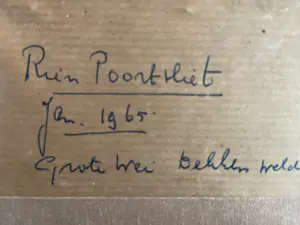 Rien Poortvliet
Jan. 1965.
Grote Wei Dekkersweld